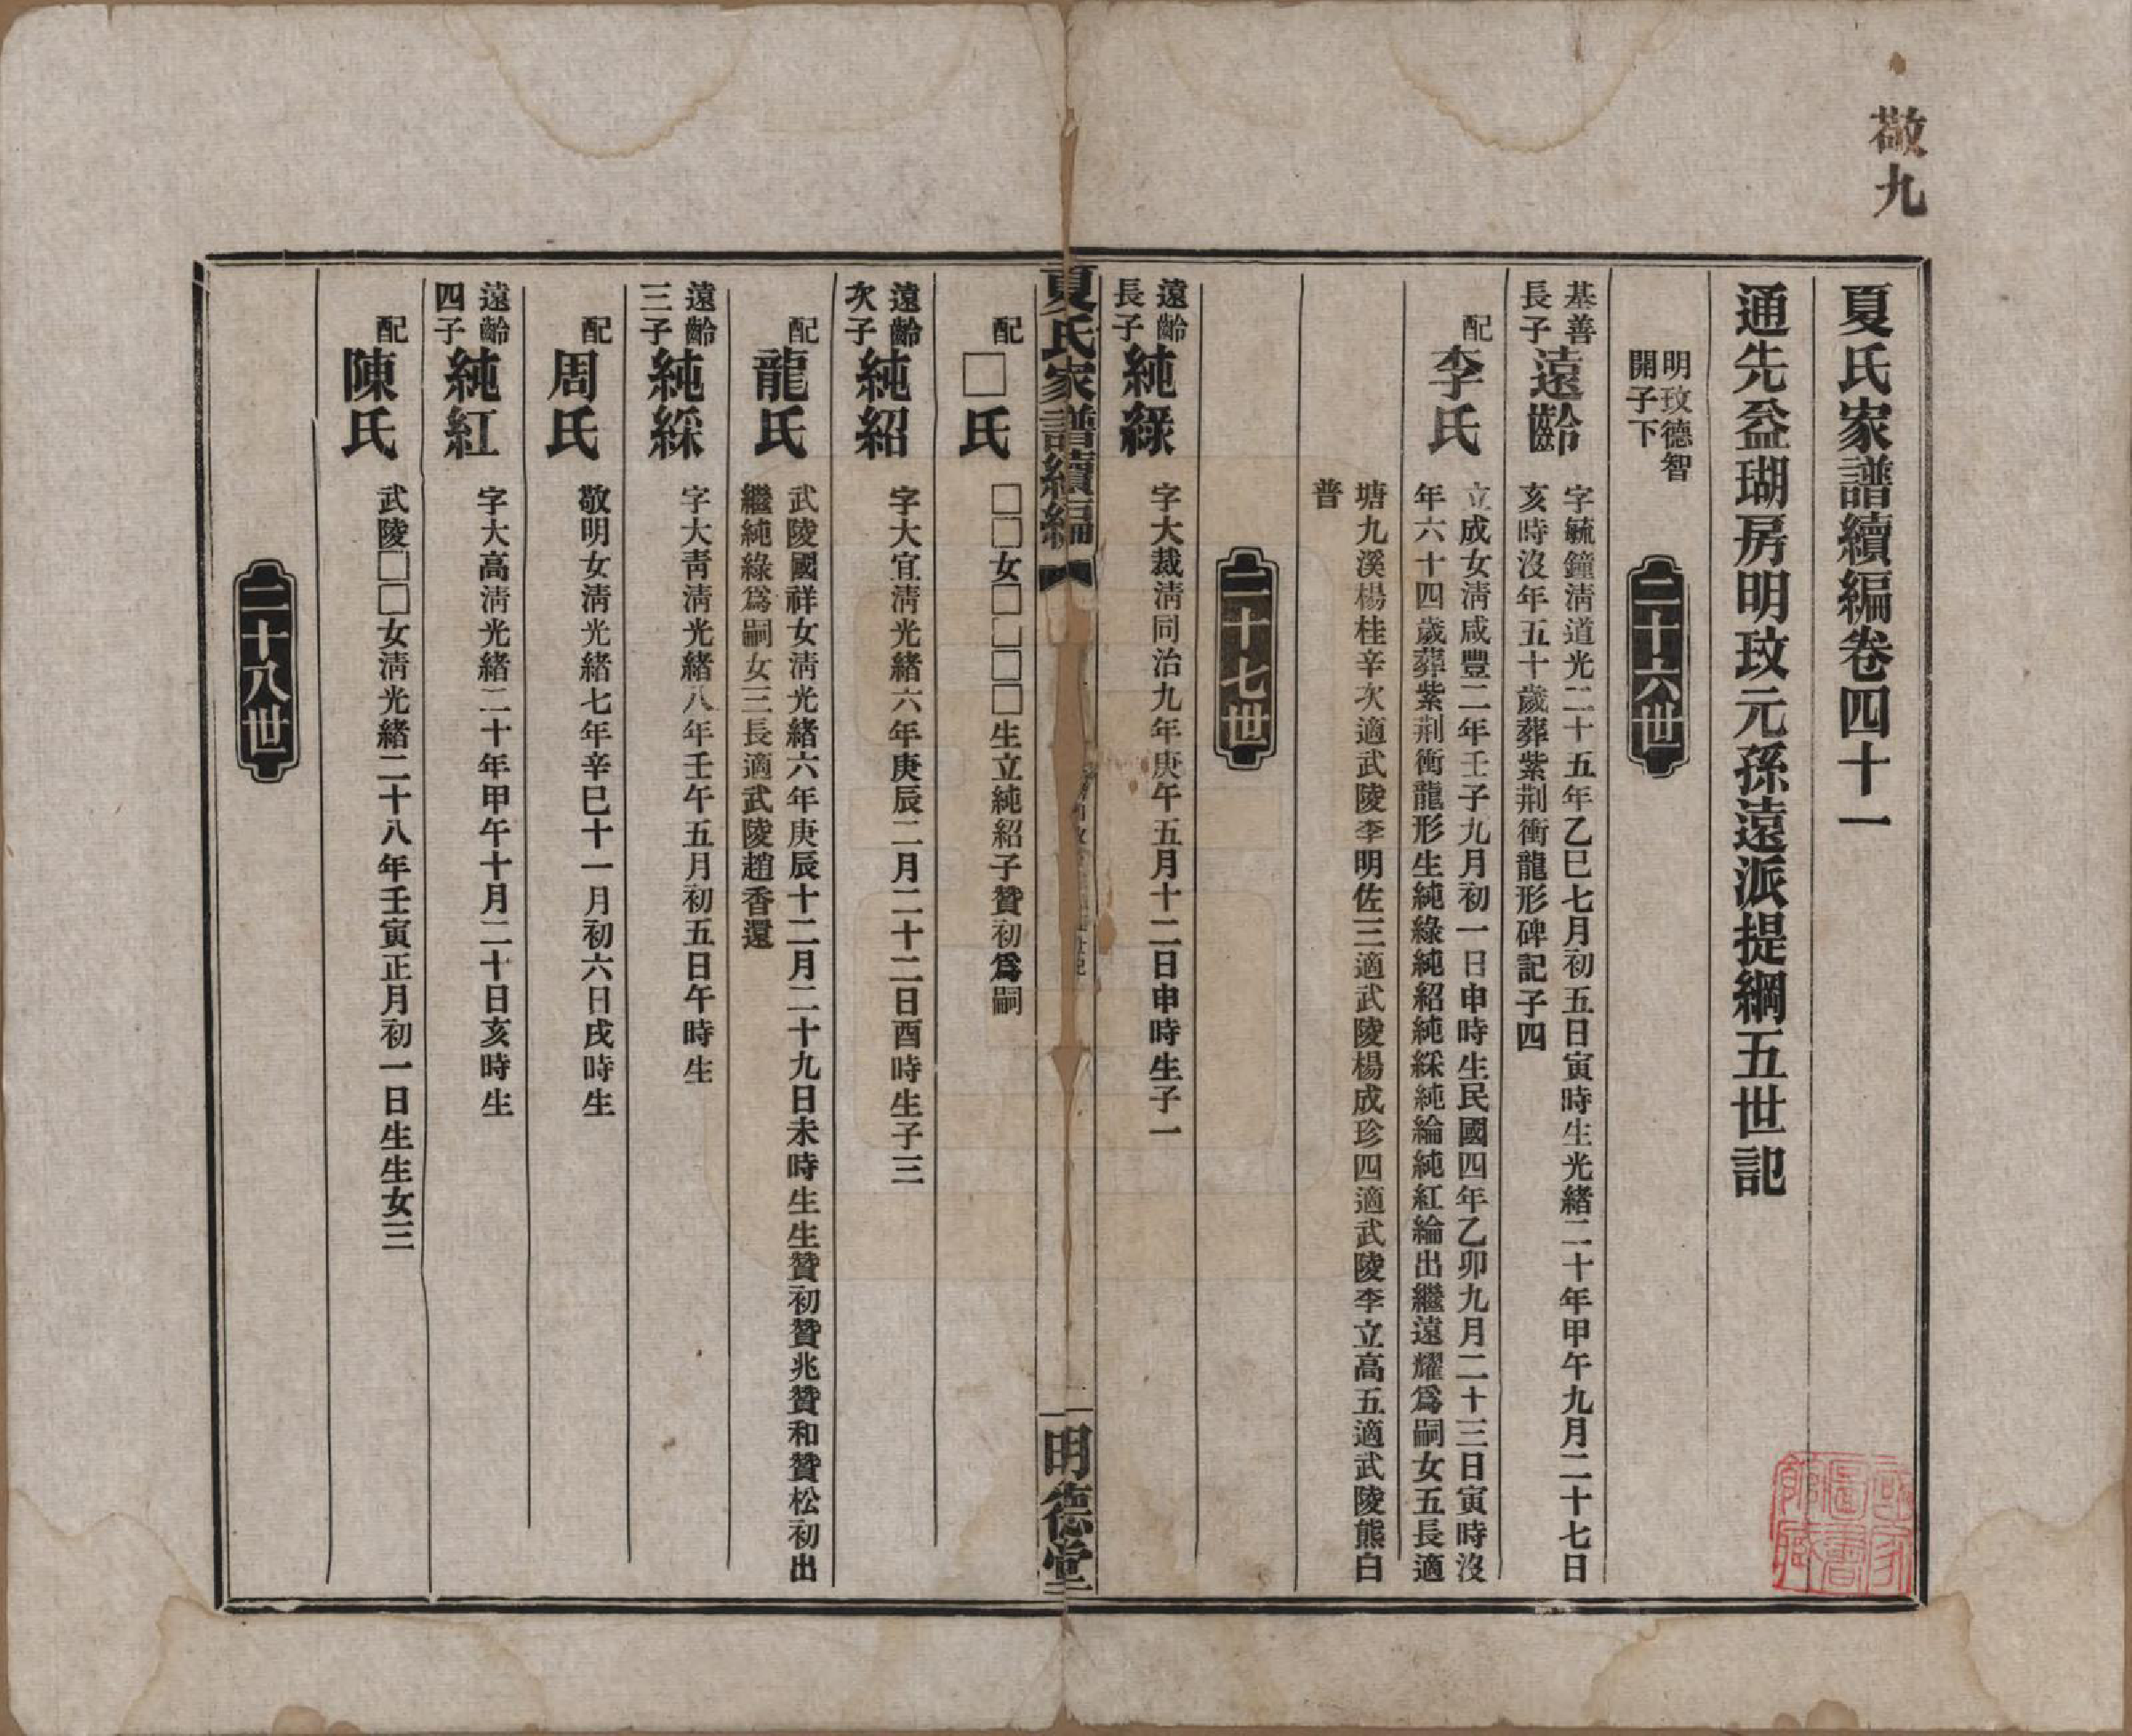 敬九
夏氏家譜續編卷四十一
通先益瑚房明玟元孫遠派提綱五世記
明玟德智
開子下
二十六世
基善
長子
遠齡
字毓鐘淸道光二十五年乙巳七月初五日寅時生光緒二十年甲午九月二十七日
亥時沒年五十歲葬紫荆衝龍形碑記子四
配
李氏
立成女淸咸豐二年壬子九月初一日申時生民國四年乙卯九月二十三日寅時沒
年六十四歲葬紫荆衝龍形生純綠純紹純綵純綸純紅綸出繼遠耀爲嗣女五長適
塘九溪楊桂辛次適武陵李明佐三適武陵楊成珍四適武陵李立高五適武陵熊白
普
二十七世
遠齡
長子
純綠
字大裁淸同治九年庚午五月十二日申時生子一
夏氏家譜續編
明德堂
配
□氏
□□女□□□□生立純紹子贊初爲嗣
遠齡
次子
純紹
字大宜淸光緒六年庚辰二月二十二日酉時生子三
配
龍氏
武陵國祥女淸光緒六年庚辰十二月二十九日未時生生贊初贊兆贊和贊松初出
繼純綠爲嗣女三長適武陵趙香還
遠齡
三子
純綵
字大靑淸光緒八年壬午五月初五日午時生
配
周氏
敬明女淸光緒七年辛巳十一月初六日戌時生
遠齡
四子
純紅
字大高淸光緒二十年甲午十月二十日亥時生
配
陳氏
武陵□□女淸光緒二十八年壬寅正月初一日生生女三
二十八世